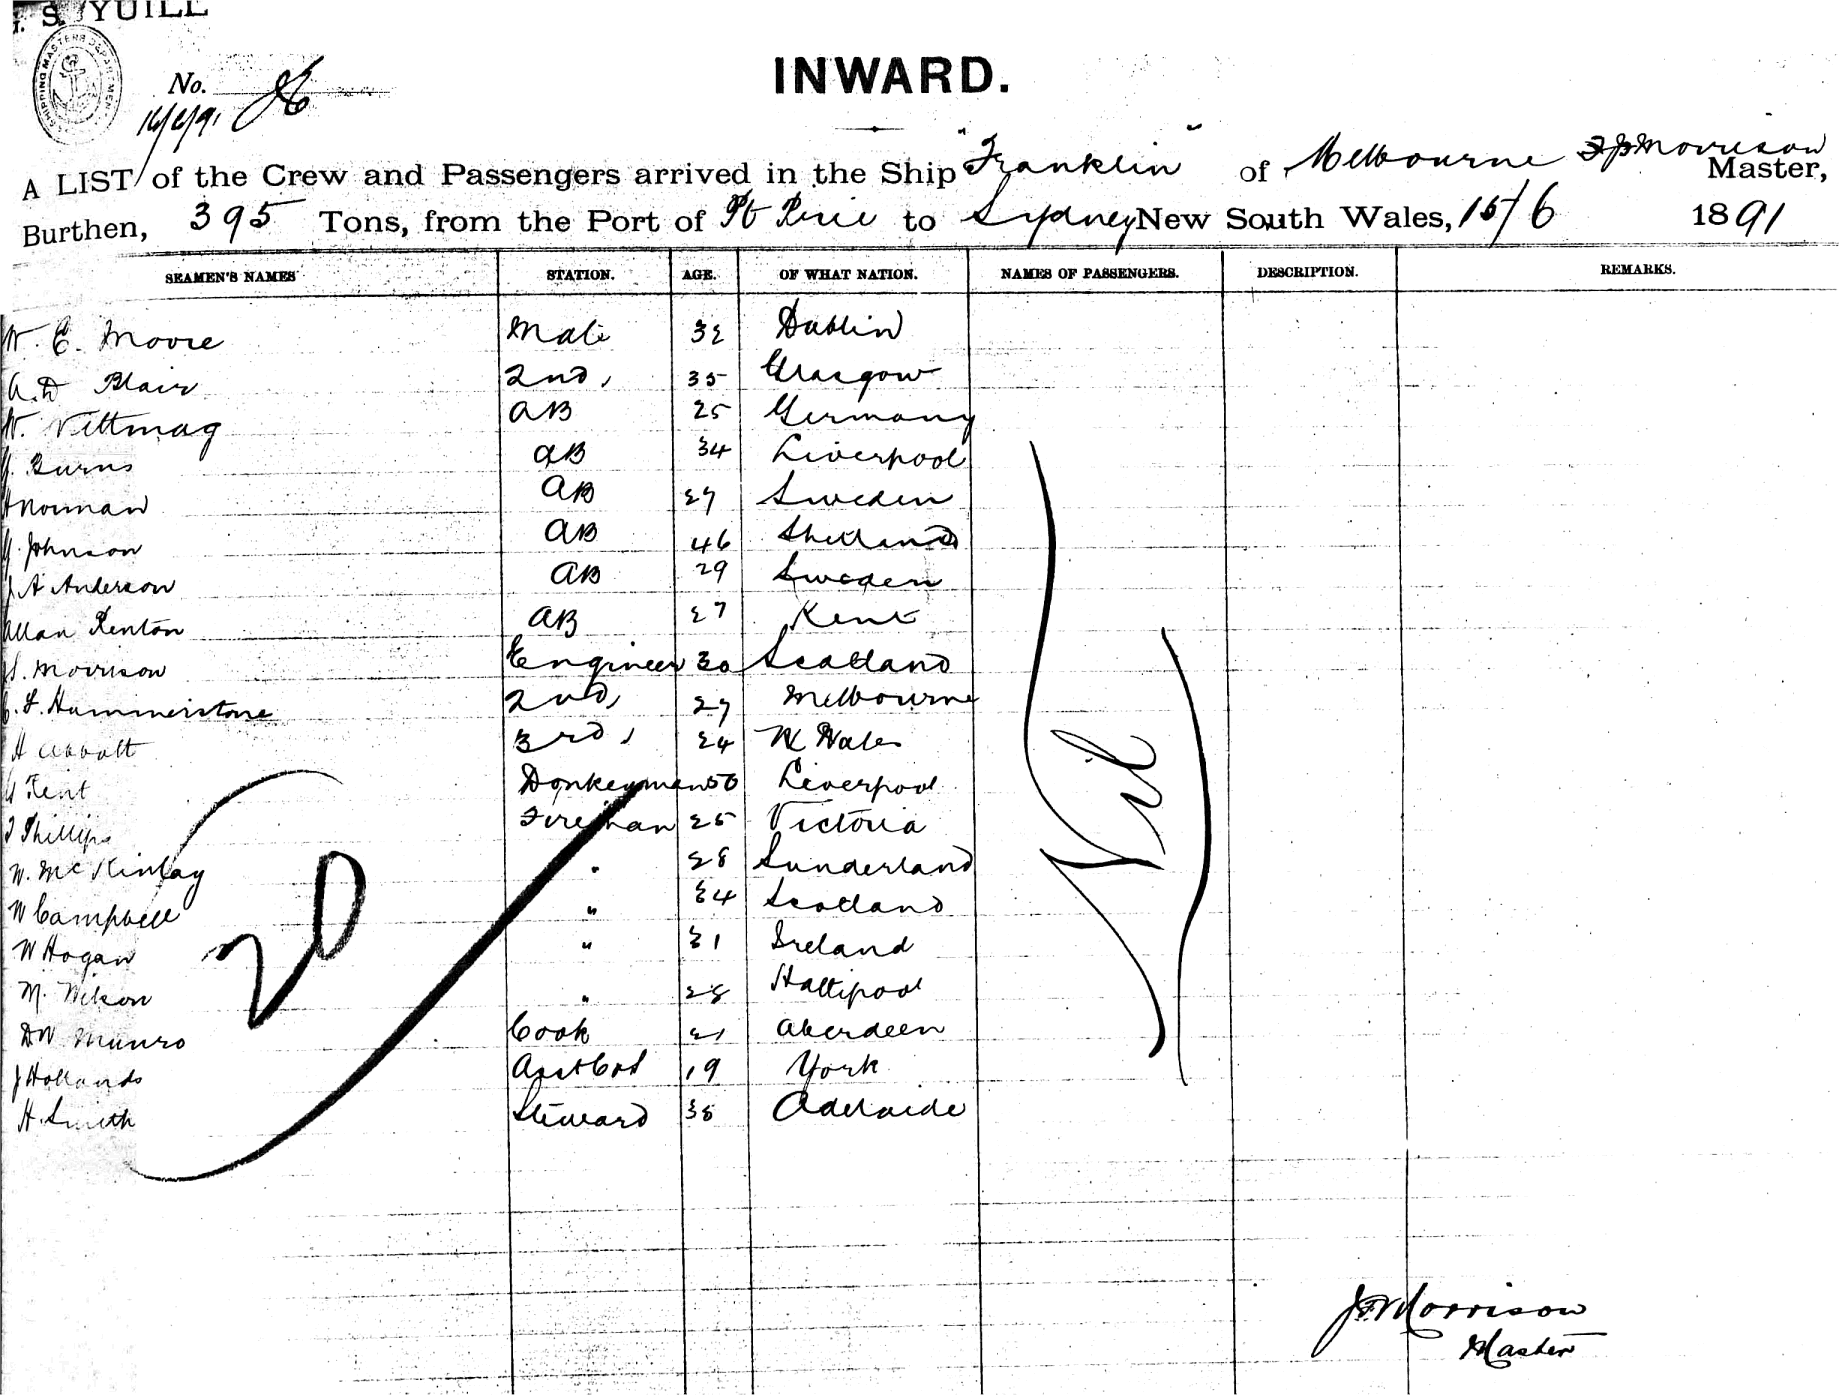 S. YUILL
SHIPPING MASTERS DEPARTMENT
No.
16/6/91
INWARD.
A LIST of the Crew and Passengers arrived in the Ship "Franklin" of Melbourne Morrison Master,
Burthen, 395 Tons, from the Port of Pt Pirie to Sydney New South Wales, 15/6 1891
SEAMEN'S NAMES STATION. AGE. OF WHAT NATION. NAMES OF PASSENGERS. DESCRIPTION. REMARKS.
W. E. Moore Mate 32 Dublin
A. D Blair 2nd, 35 Glasgow
W. Vittmag AB 25 Germany
J. Burns AB 34 Liverpool
H Norman AB 27 Sweden
J. Johnson AB 46 Shetland
J A Anderson AB 29 Sweden
Allan Renton AB 27 Kent
Morrison Engineer 30 Scotland
F. Hammerstone 2nd, 27 Melbourne
H Abbott 3rd, 24 N Wales
Kent Donkeyman 50 Liverpool
Phillips Fireman 25 Victoria
W. McKinlay " 28 Sunderland
W Campbell " 34 Scotland
W Hogan " 31 Ireland
M. Nelson " 28 Hartlpool
D W Munro Cook 21 Aberdeen
J Hollands Asst Cook 19 York
H. Smith Steward 38 Adelaide
20
Nil
Morrison
Master